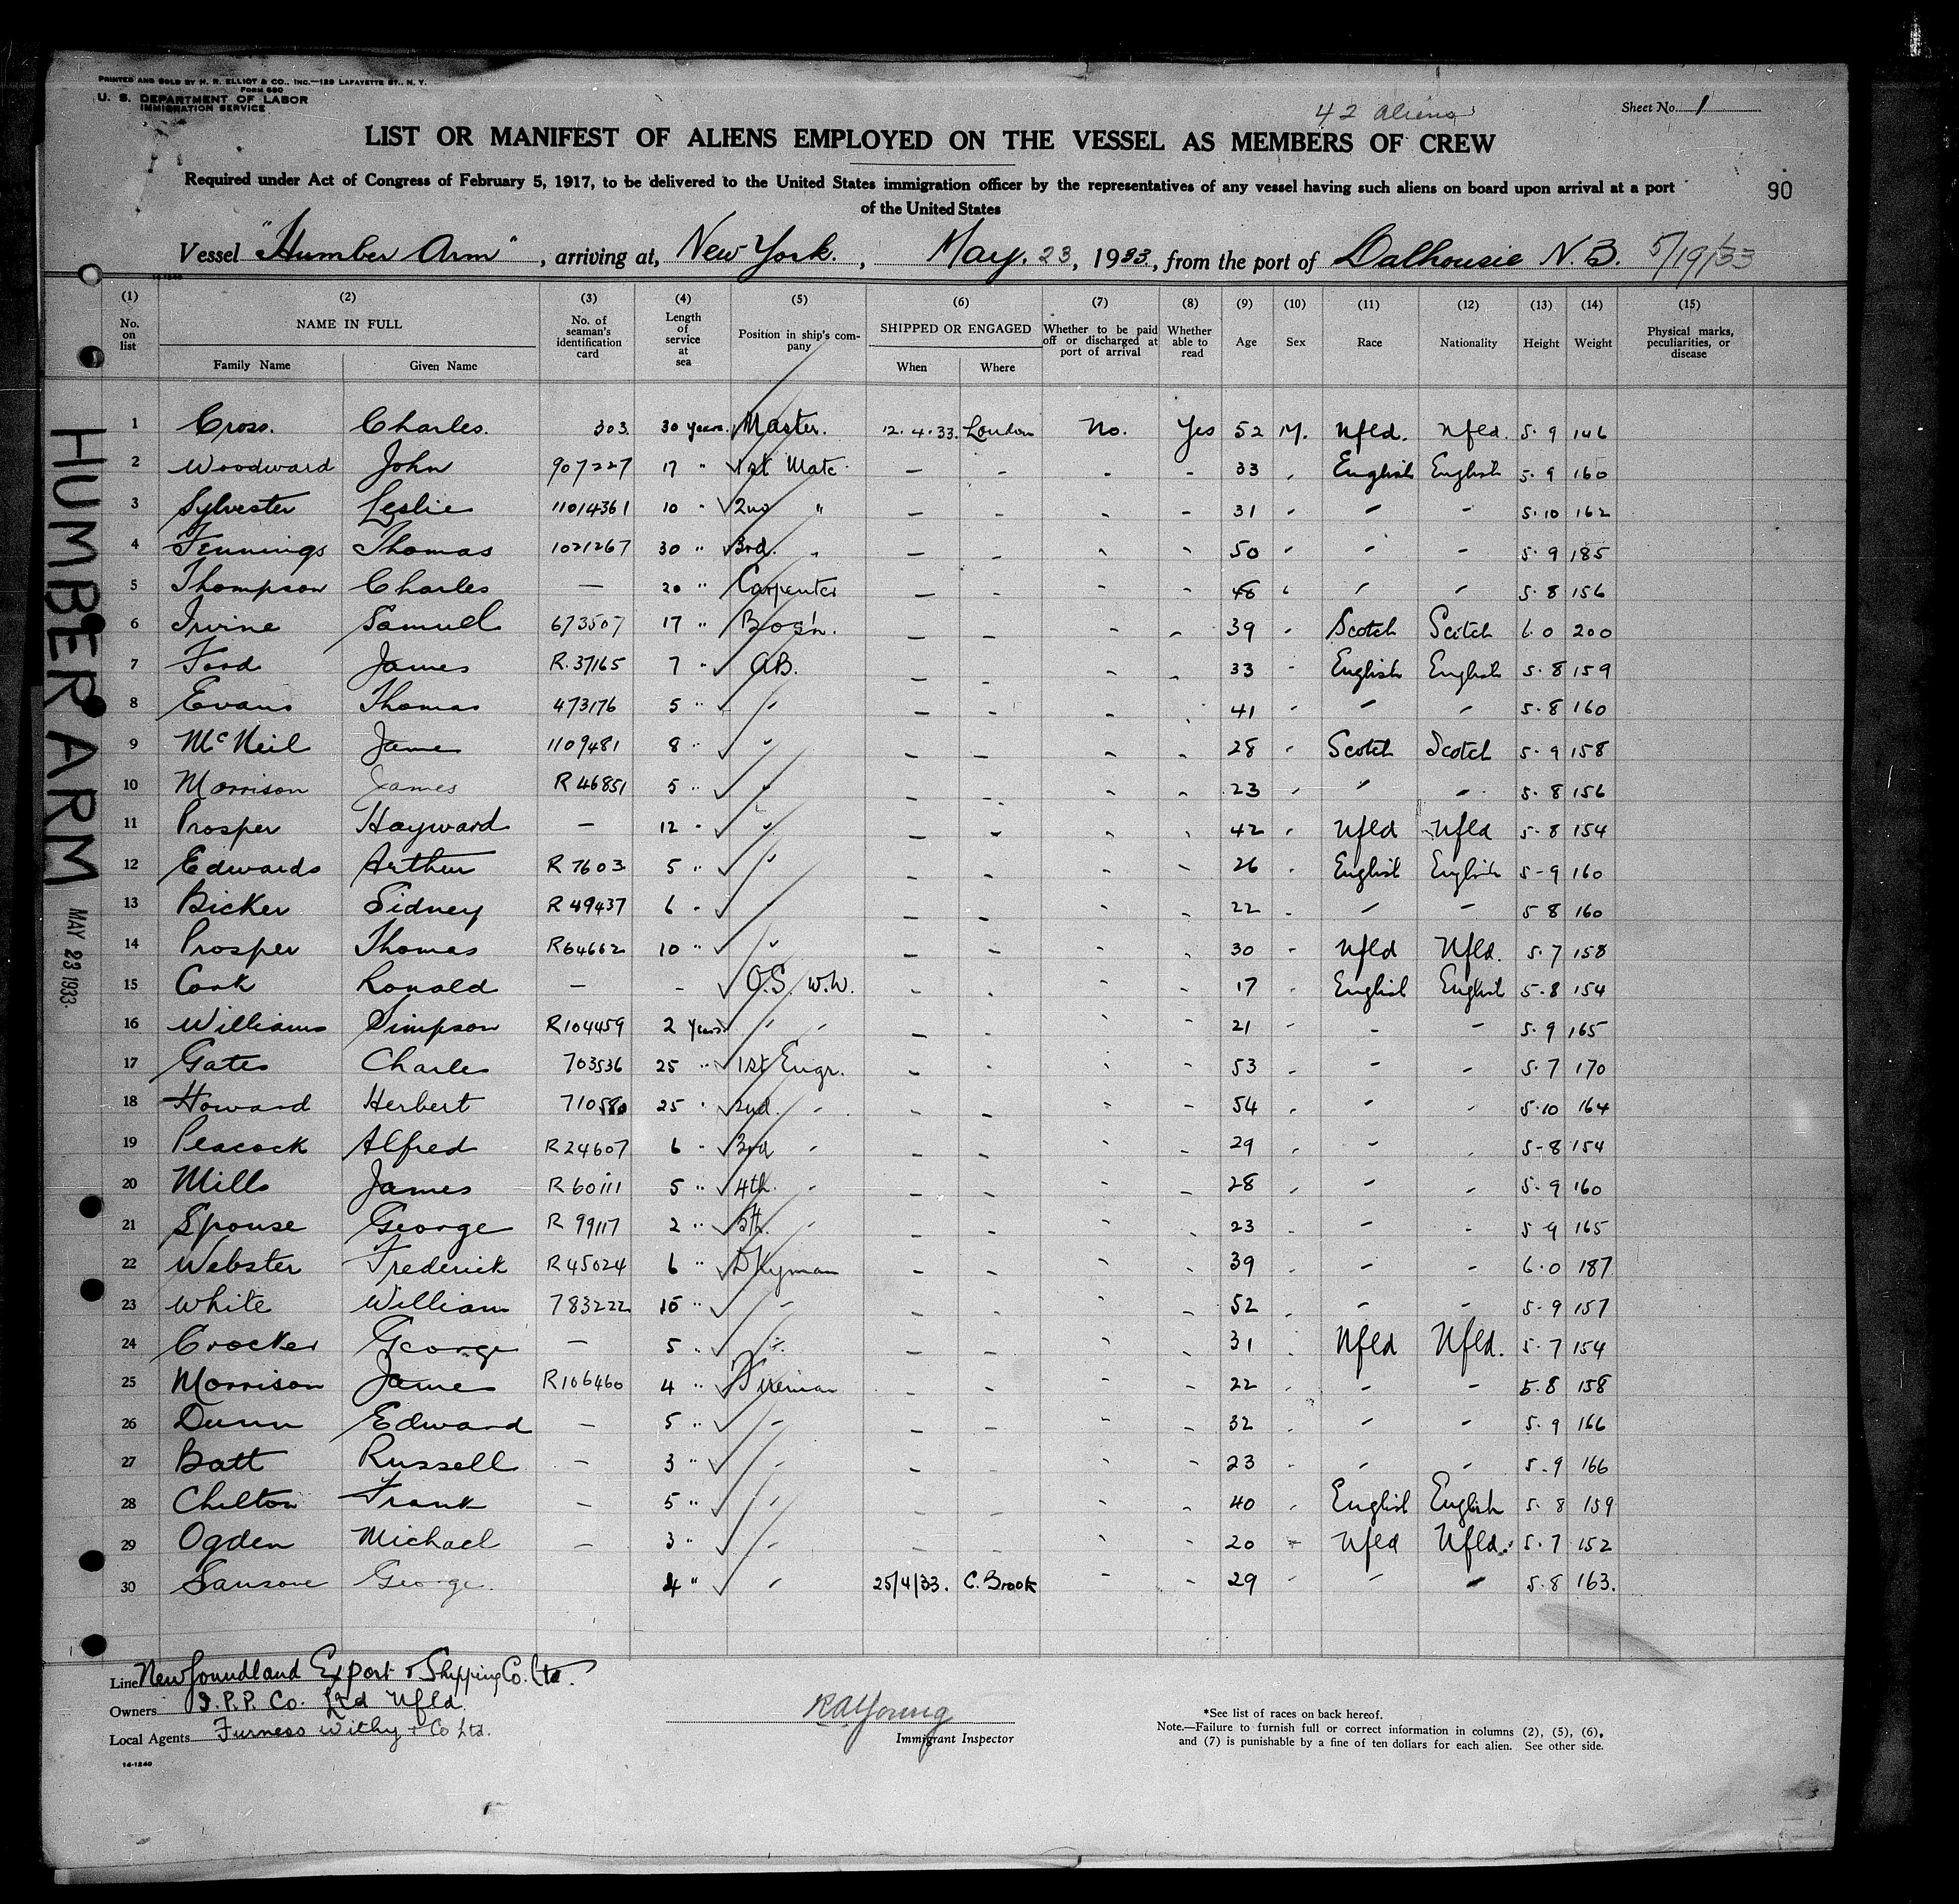 PRINTED AND SOLD BY H. R. ELLIOT & CO., INC.—129 LAFAYETTE ST., N. Y.
FORM 680
U. S. DEPARTMENT OF LABOR
IMMIGRATION SERVICE
42 aliens
Sheet No. 1
LIST OR MANIFEST OF ALIENS EMPLOYED ON THE VESSEL AS MEMBERS OF CREW
Required under Act of Congress of February 5, 1917, to be delivered to the United States immigration officer by the representatives of any vessel having such aliens on board upon arrival at a port
of the United States
90
Vessel "Humber Arm", arriving at, New York., May. 23, 1933, from the port of Dalhousie N.B. 5/19/33
14-1240
(1) (2) (3) (4) (5) (6) (7) (8) (9) (10) (11) (12) (13) (14) (15)
No. on list
NAME IN FULL
Family Name Given Name
No. of seaman's identification card
Length of service at sea
Position in ship's company
SHIPPED OR ENGAGED
When Where
Whether to be paid off or discharged at port of arrival
Whether able to read
Age Sex Race Nationality Height Weight
Physical marks, peculiarities, or disease
1 Cross. Charles. 303 30 years. Master. 12.4.33. London No. Yes 52 M. Nfld. Nfld. 5.9 146
2 Woodward John 907227 17 " 1st Mate - - - - 33 " English English 5.9 160
3 Sylvester Leslie 11014361 10 " 2nd " - - - - 31 " " " 5.10 162
4 Jennings Thomas 1021267 30 " 3rd. " - - - - 50 " " " 5.9 185
5 Thompson Charles — 20 " Carpenter - - - - 46 " " " 5.8 156
6 Irvine Samuel 673507 17 " Bos'n. - - - - 39 " Scotch Scotch 6.0 200
7 Ford James R.37165 7 " A.B. - - - - 33 " English English 5.8 159
8 Evans Thomas 473176 5 " " - - - - 41 " " " 5.8 160
9 McNeil James 1109481 8 " " - - - - 28 " Scotch Scotch 5.9 158
10 Morrison James R 46851 5 " " - - - - 23 " " " 5.8 156
11 Prosper Hayward — 12 " " - - - - 42 " Nfld Nfld 5.8 154
12 Edwards Arthur R 7603 5 " " - - - - 26 " English English 5-9 160
13 Bicker Sidney R 49437 6 " " - - - - 22 " " " 5 8 160
14 Prosper Thomas R64662 10 " " - - - - 30 " Nfld Nfld. 5.7 158
15 Cook Ronald — - O.S. W.W. - - - - 17 " English English 5-8 154
16 Williams Simpson R104459 2 Years " " - - - - 21 " " " 5.9 165
17 Gates Charles 703536 25 " 1st Engr. - - - - 53 " " " 5.7 170
18 Howard Herbert 710580 25 " 2nd. " - - - - 54 " " " 5.10 164
19 Peacock Alfred R24607 6 " 3rd " - - - - 29 " " " 5-8 154
20 Mills James R 60111 5 " 4th. " - - - - 28 " " " 5.9 160
21 Spouse George R 99117 2 " 5th. " - - - - 23 " " " 5 9 165
22 Webster Frederick R45024 6 " Dkyman - - - - 39 " " " 6.0 187
23 White William 783222 15 " " - - - - 52 " " " 5.9 157
24 Crocker George — 5 " " - - - - 31 " Nfld Nfld. 5.7 154
25 Morrison James R106460 4 " Fireman - - - - 22 " " " 5.8 158
26 Dunn Edward — 5 " " - - - - 32 " " " 5.9 166
27 Batt Russell — 3 " " - - - - 23 " " " 5.9 166
28 Chelton Frank — 5 " " - - - - 40 " English English 5.8 159
29 Ogden Michael — 3 " " - - - - 20 " Nfld Nfld. 5.7 152
30 Sansome George. 4 " " 25/4/33. C. Brook - - 29 " " " 5.8 163.
HUMBER ARM
MAY 23 1933
Line Newfoundland Export & Shipping Co. Ltd.
Owners I.P.P. Co. Ltd Nfld.
Local Agents Furness Withy & Co Ltd.
14-1240
R A Young
Immigrant Inspector
*See list of races on back hereof.
Note.—Failure to furnish full or correct information in columns (2), (5), (6),
and (7) is punishable by a fine of ten dollars for each alien. See other side.